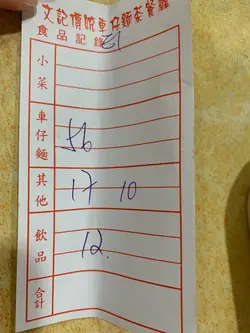 文記傳統車仔麵茶餐廳
食品記錄 E1
小菜
車仔麵 56
其他 17 10
飲品 12.
合計